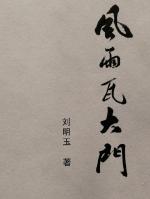 風雨瓦大門
刘明玉 著